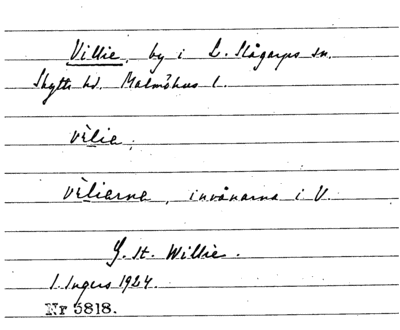 Villie, by i L. Slågarps sn.
Skytts hd. Malmöhus l.
vèlia,
vèliarna, invånarna i V.
G. st. Willie.
I. Ingers 1924.
Nr 5818.